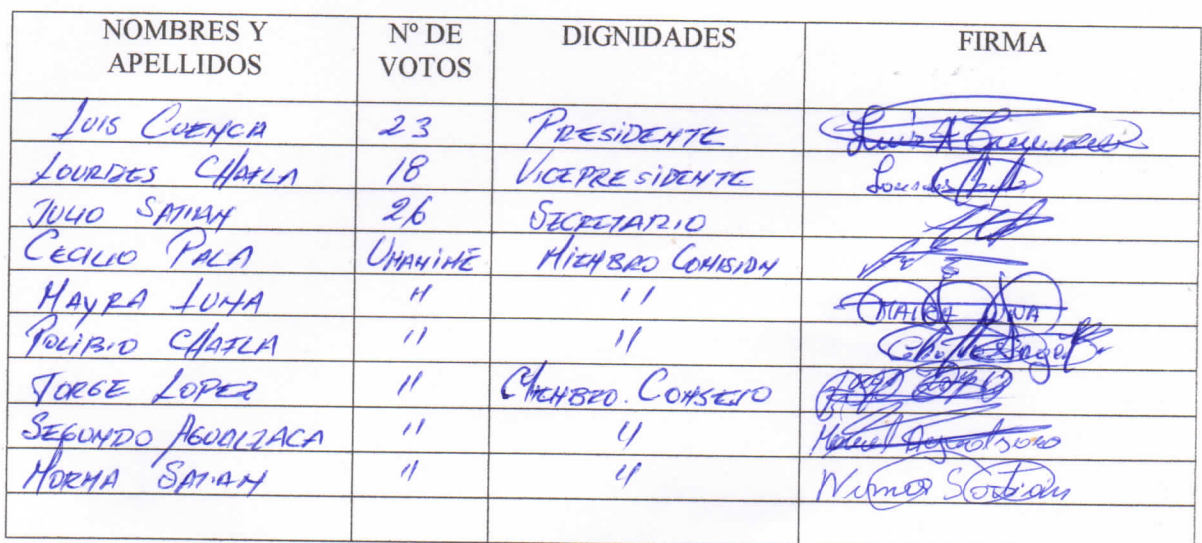 NOMBRES Y APELLIDOS Nº DE VOTOS DIGNIDADES FIRMA
LUIS CUENCA 23 PRESIDENTE
LOURDES CHAFLA 18 VICEPRESIDENTE Lourdes
JULIO SATIAN 26 SECRETARIO
CECILIO PALA UNANIME MIEMBRO COMISION
MAYRA LUNA " " MAIRA LUNA
POLIBIO CHAFLA " "
JORGE LOPEZ " MIEMBRO. CONSEJO
SEGUNDO AGUALZACA " "
NORMA SATIAN " " Norma Satian